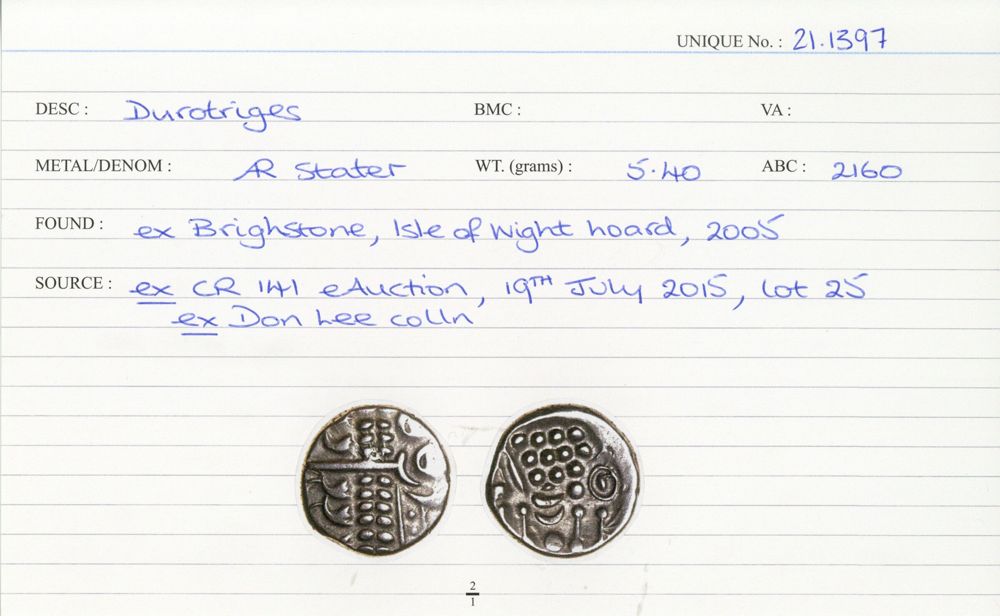 UNIQUE No. : 21.1397
DESC : Durotriges BMC : VA :
METAL/DENOM : AR Stater WT. (grams) : 5.40 ABC : 2160
FOUND : ex Brighstone, Isle of Wight hoard, 2005
SOURCE : ex CR 141 eAuction, 19TH July 2015, lot 25
ex Don Lee colln
2
1